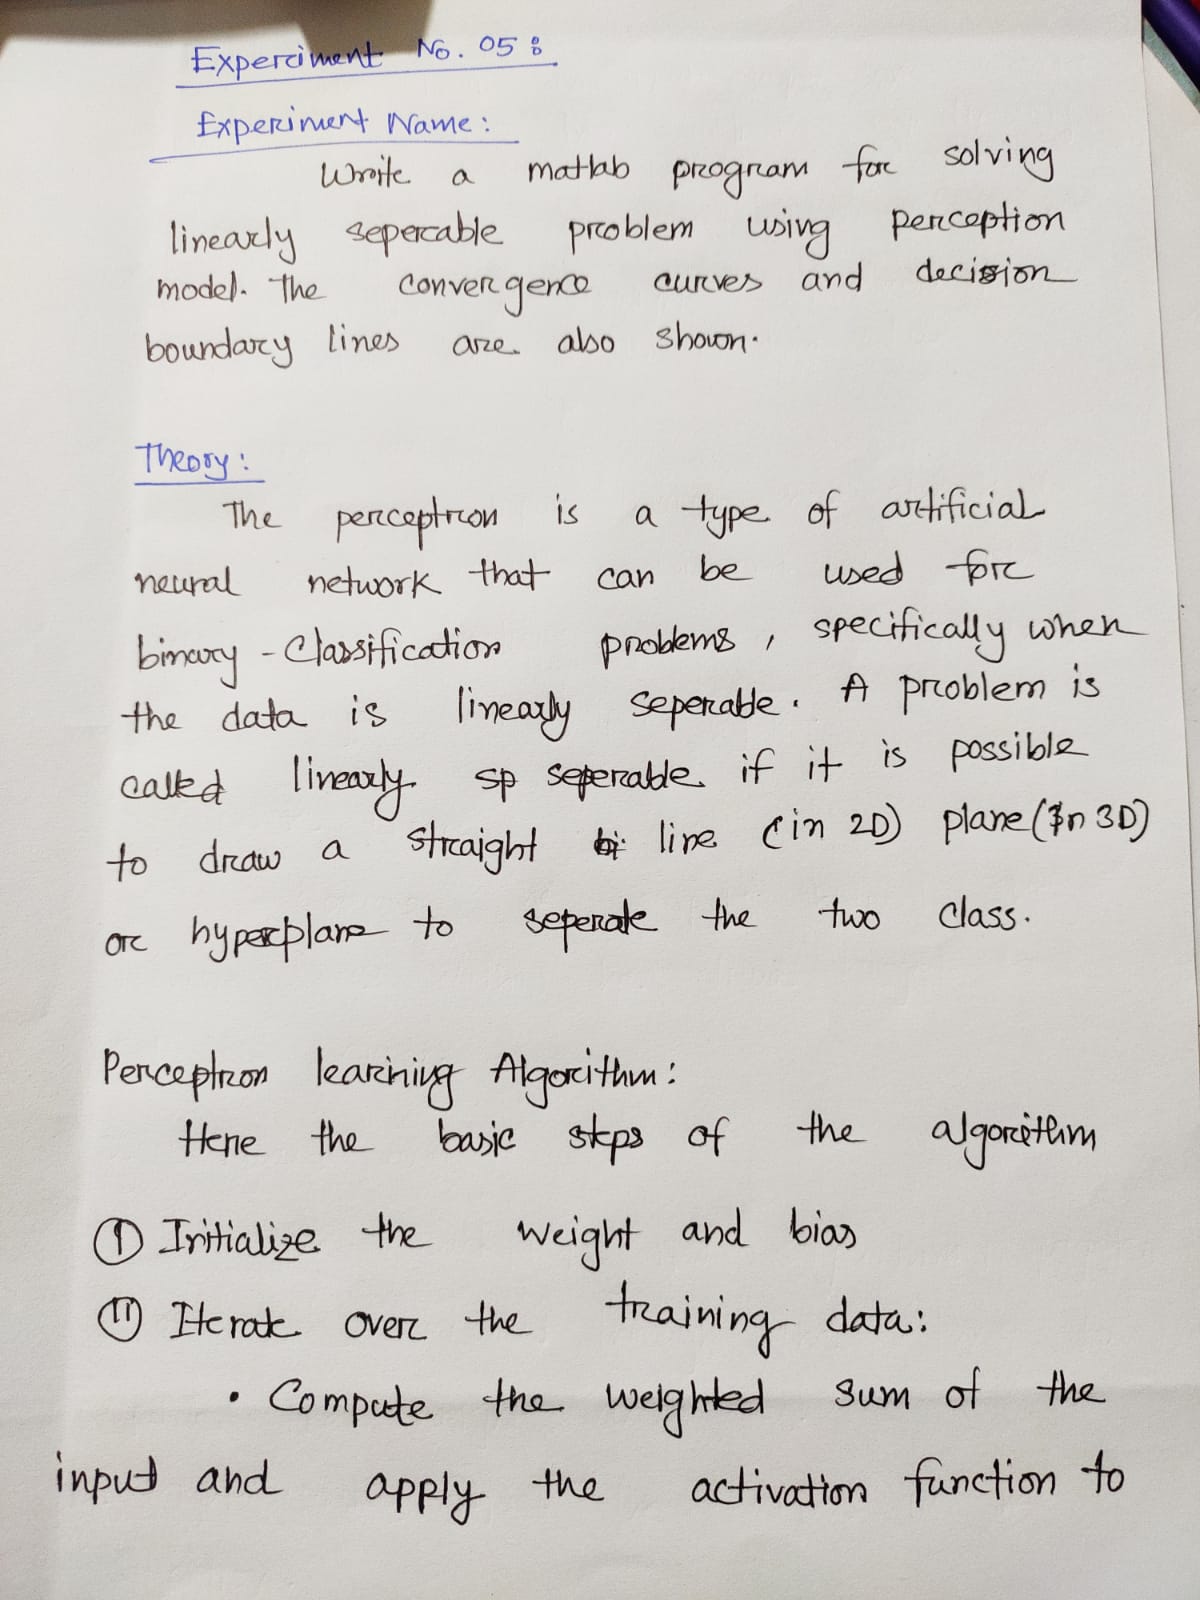 Experiment No. 05:
Experiment Name:
Write a matlab program for solving
linearly seperable problem using perception
model. The convergence curves and decision
boundary lines are also shown.
Theory:
The perceptron is a type of artificial
neural network that can be used for
binary-Classification problems, specifically when
the data is linearly seperable. A problem is
called linearly sp seperable if it is possible
to draw a straight line (in 2D) plane (In 3D)
or hyperplane to seperate the two class.
Perceptron learning Algorithm:
Here the basic steps of the algorithm
(I) Initialize the weight and bias
(II) Iterate over the training data:
• Compute the weighted sum of the
input and apply the activation function to